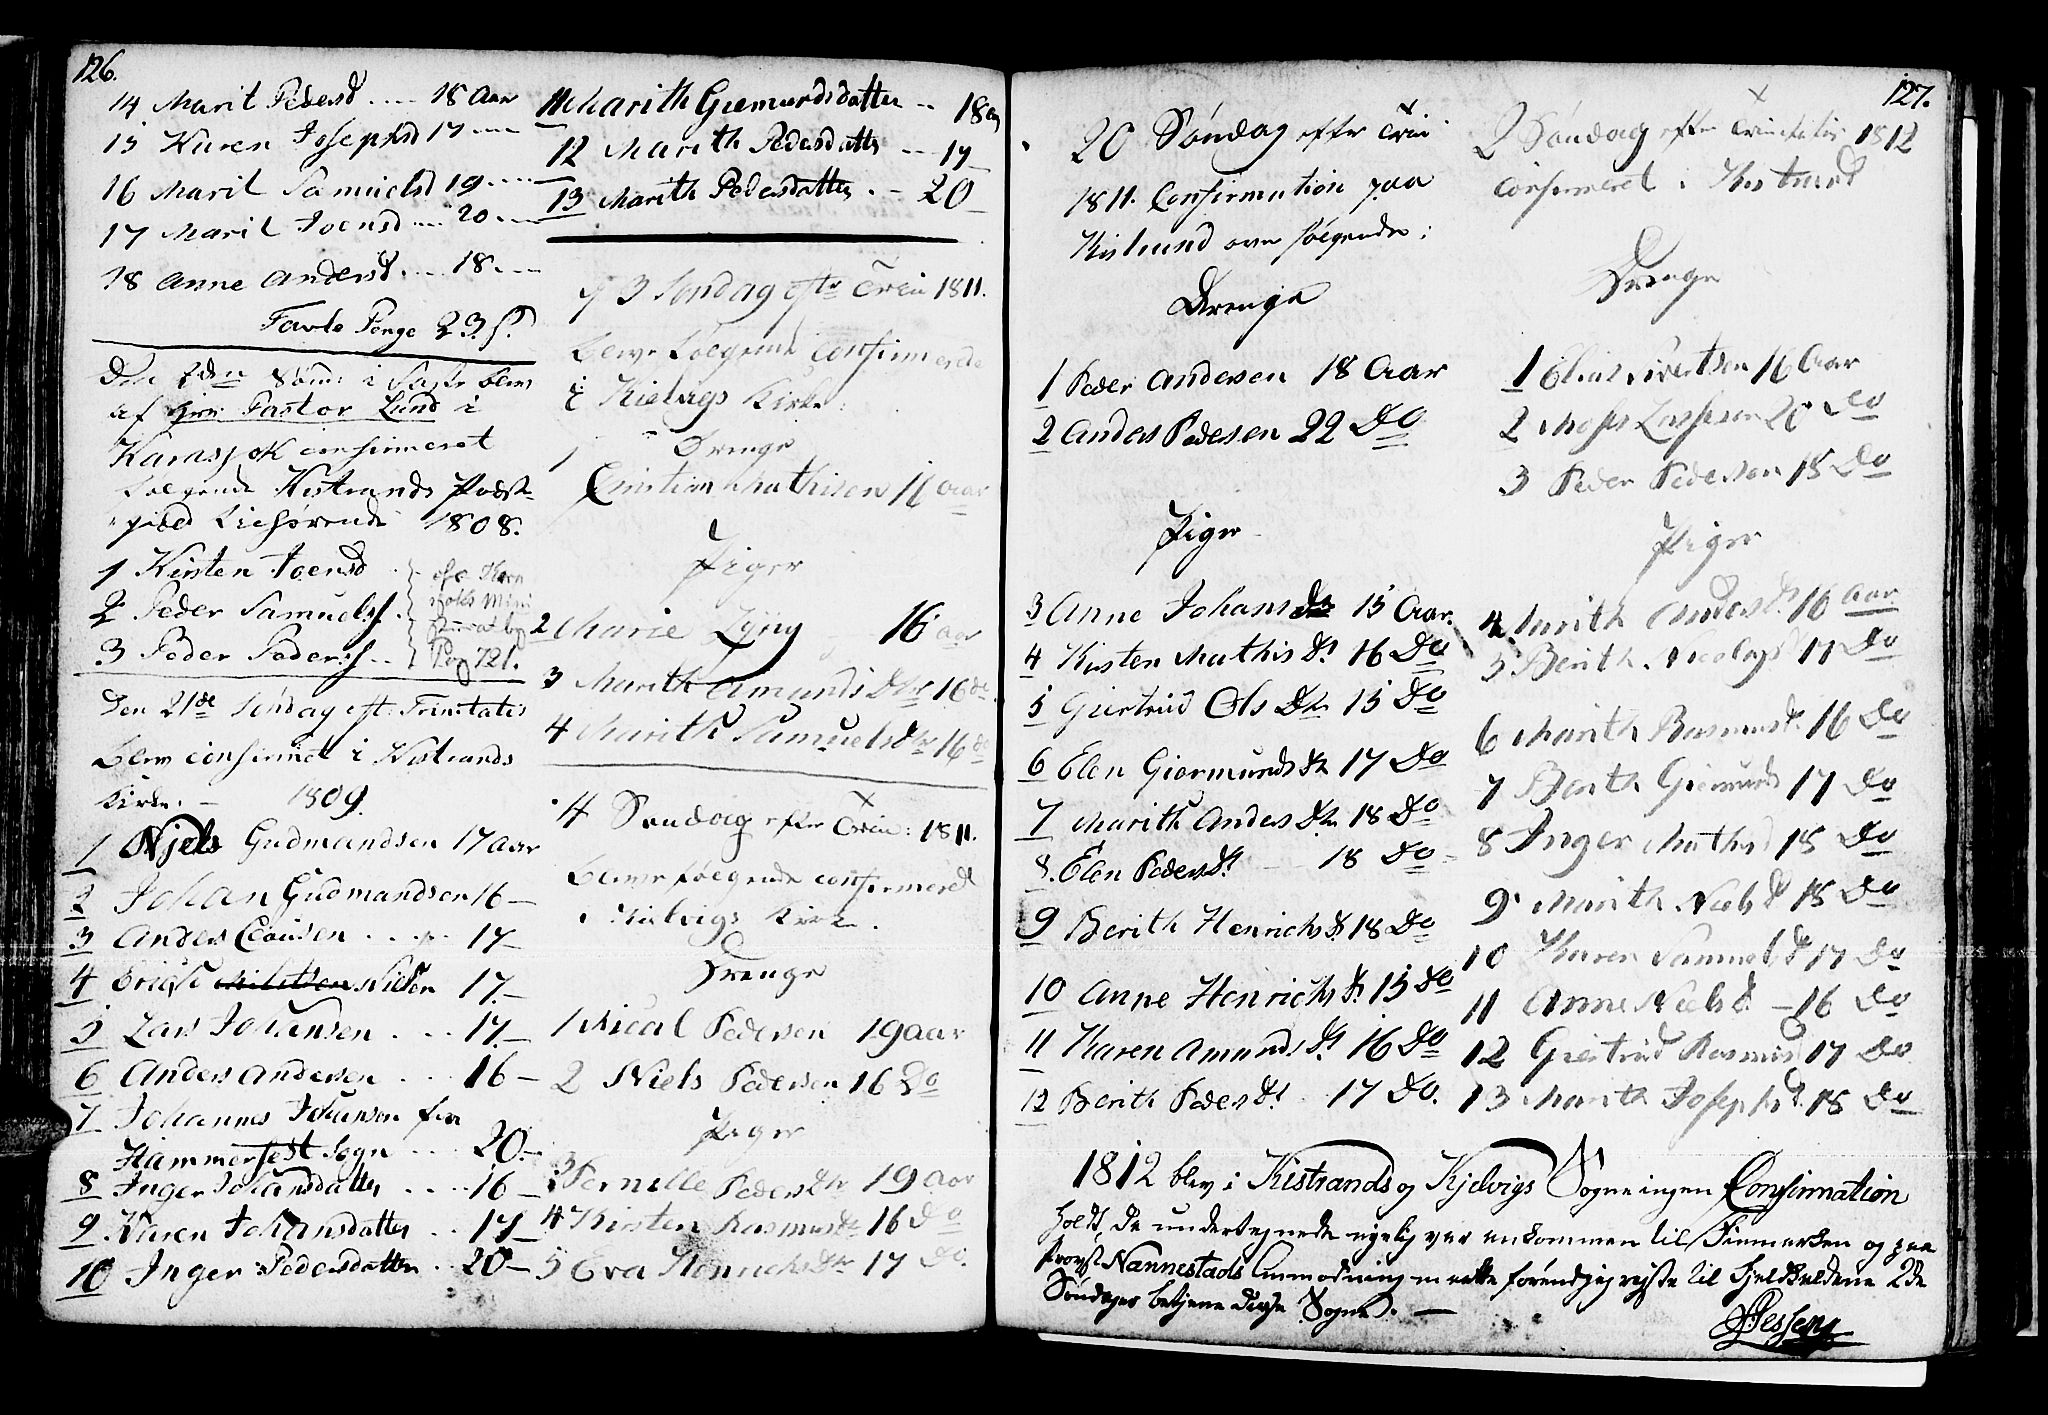 126.
14 Marit Pedersd .... 18 Aar
15 Karen Josephsd 17 ----
16 Marit Samuelsd 19 ----
17 Marit Joensd --- 20 ---
18 Anne Andersd. --- 18 ---
Tavle Penge 23 s.
Den 2den Sønd: i Faste blev
af Hrr: Pastor Lund i
Karasjok confirmeret
følgende Kistrands Præste-
gield 1808.
1 Kirsten Joensd
2 Peder Samuelss.
3 Peder Pederss ..
Pag 721.
Den 21de Søndag eft: Trinitatis
blev confirmet i Kistrands
Kirke. — 1809.
1 Njels Gudmandsen 17 Aar
2 Johan Gudmandsen 16 —
3 Anders Clausen .... 17 —
4 Nilsen 17. —
5 Lars Johansen ... 17. —
6 Anders Andersen ... 16 —
7 Johannes Johansen fra
Hammerfest Sogn ... 20. —
8 Inger Johansdatter ... 16 —
9 Karen Johansdatter .. 17 —
10 Inger Pedersdatter . 20 —
11 Marith Giermundsdatter -- 18
12 Marith Pedersdatter --- 17
13 Marith Pedersdatter . - 20 —
3 Søndag eftr Trin 1811.
bleve følgende Confirmerede
i Kielvigs Kirke:
Drenge
1 Christian Mathisen 16 Aar
Piger
2 Marie 16 aar
3 Marith Amunds Dtr 16 do
4 Marith Samuels Dtr 16 do
4 Søndag efter Trin: 1811.
bleve følgende confirmeret
i Kielvigs Kirke.
Drenge
1 Nicol Pedersen 19 aar
2 Niels Pedersen 16 Do
Piger
3 Pernille Peders Dtr 19 Aar
4 Kirsten Rasmusdr 16 Do
5 Eva Henrichsdtr 17 Do.
127.
20 Søndag efter Trin
1811. Confirmation paa
Kistrand over følgende:
Drenge
1 Peder Andersen 18 Aar
2 Anders Pedersen 22 Do
Piger
3 Anne Johans Dr 15 Aar
4 Kirsten Mathis Dr 16 Do
5 Giertrud Ols Dr 15 Do
6 Elen Giermunds Dr 17 Do
7 Marith Anders Dr 18 Do
8. Elen Peders Dr 18 Do
9 Berith Henrichs Dr 18 Do
10 Anne Henrichs Dr 15 Do
11 Karen Amunds Dr 16 Do
12 Berith Peders Dr 17 Do.
2 Søndag efter Trinitatis 1812
Confirmeret i Kistrand
Drenge
1 Elias Sivertsen 16 Aar
2 Moses Larssen 20 Do
3 Peder Pedersen 18 Do
Piger
4 Marith Anders Dr 16 Aar
5 Berith Nicolays D 17 Do
6 Marith Rasmus Dr 16 Do
7 Berith Giermunds 17 Do
8 Inger Mathis D 18 Do
9 Marith Niels D 18 Do
10 Karen Samuels D 17 Do
11 Anne Niels D. — 16 Do
12 Giertrud Rasmus D 17 Do
13 Marith Josephs D. 18 Do
1812 blev i Kistrands og Kjelvigs Sogne ingen Confirmation
holdt, da undertegnede nyelig var ankommen til Finmarken og paa
Provst Nannestads Anmodning maatte reyse til Fjeldfoldene 2de
Søndager betjene disse Sogne. —
Jessen